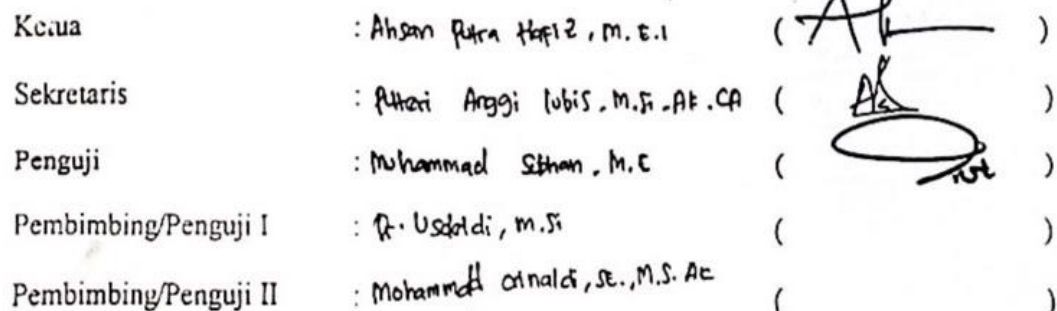 Ketua : Ahsan Putra Hafiz, M.E.I ( )
Sekretaris : Puteri Anggi Lubis, M.Si.Ak.CA ( )
Penguji : Muhammad M.E ( )
Pembimbing/Penguji I : Dr. M.Si ( )
Pembimbing/Penguji II : Mohammad SE., M.S.Ak ( )